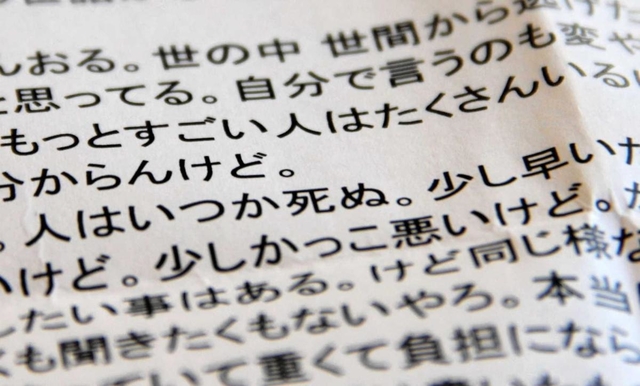 んおる。世の中 世間から逃げた
と思ってる。自分で言うのも変や
もっとすごい人はたくさんいる
分からんけど。
。人はいつか死ぬ。少し早いけ
いけど。少しかっこ悪いけど。
したい事はある。けど同じ様な
も聞きたくもないやろ。本当
ていて重くて負担になら